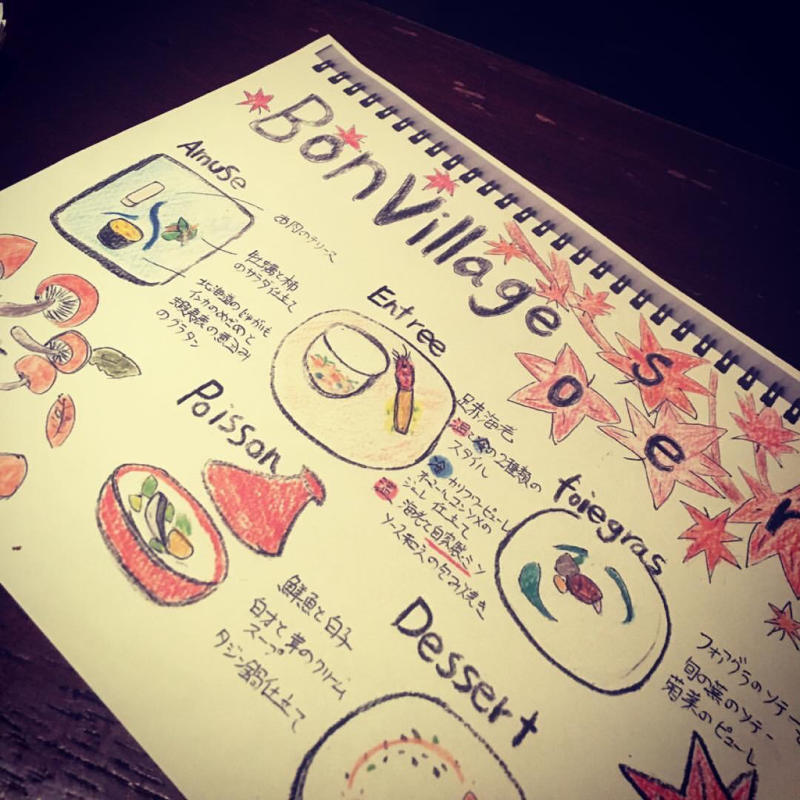 Bon Village
s
o
e
r
Amuse
お肉のテリーヌ
牡蠣と柿
のサラダ仕立て
北海道のじゃがいも
インカのめざめと
のグラタン
Entree
足赤海老
温と冷の2種類の
スタイル
冷 カリフラワーピューレ
オマールコンソメの
ジュレ仕立て
温 海老と自家製ミン
foiegras
フォアグラのソテーと
旬の葉のソテー
菊菜のピューレ
Poisson
鮮魚と白子
白才と茸のクリーム
スープ
タジン鍋仕立て
Dessert